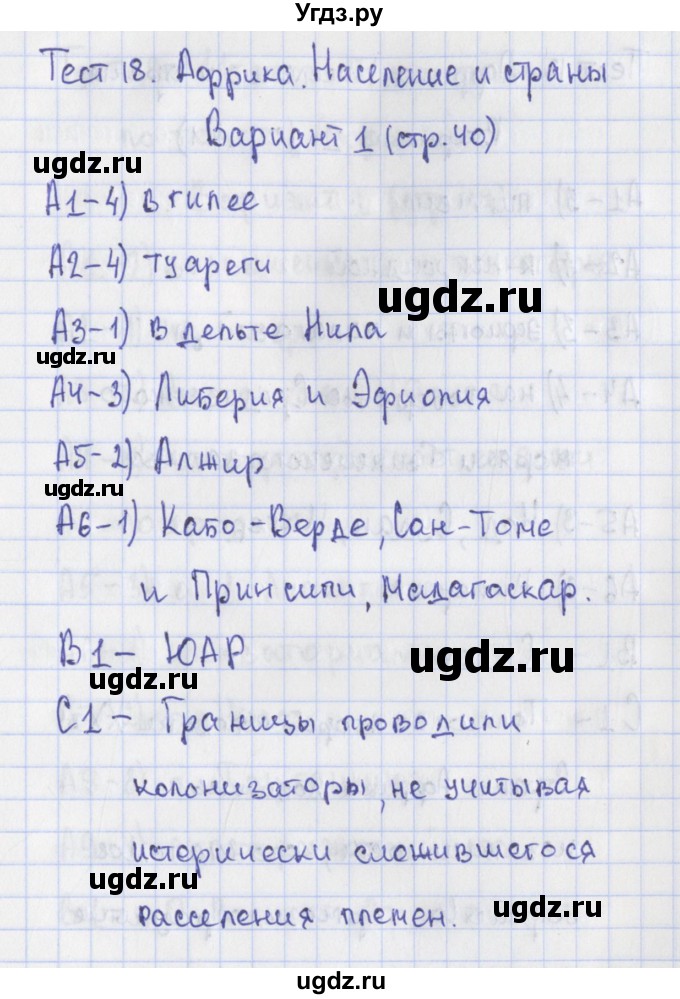 Угдз.ру
Тест 18. Африка. Население и страны
Вариант 1 (стр.40)
ugdz.ru
А1-4) в гилее
А2-4) туареги
ugdz.ru
ugdz.ru
А3-1) в дельте Нила
ugdz.ru
А4-3) Либерия и Эфиопия
А5-2) Алжир
ugdz.ru
А6-1) Кабо-Верде, Сан-Томе
ugdz.ru
и Принсипи, Мадагаскар.
В1- ЮАР
ugdz.ru
ugdz.ru
С1- Границы проводили
колонизаторы, не учитывая
истерически сложившегося
ugdz.ru
расселения племен.
ugdz.ru
ugdz.ru